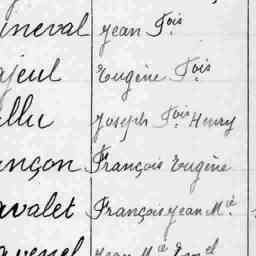 neval Jean Fois
ajeul Eugène Fois
allu Joseph Fois Henry
ançon François Eugène
avalet François Jean Mie
avenel Jean Mie Emel